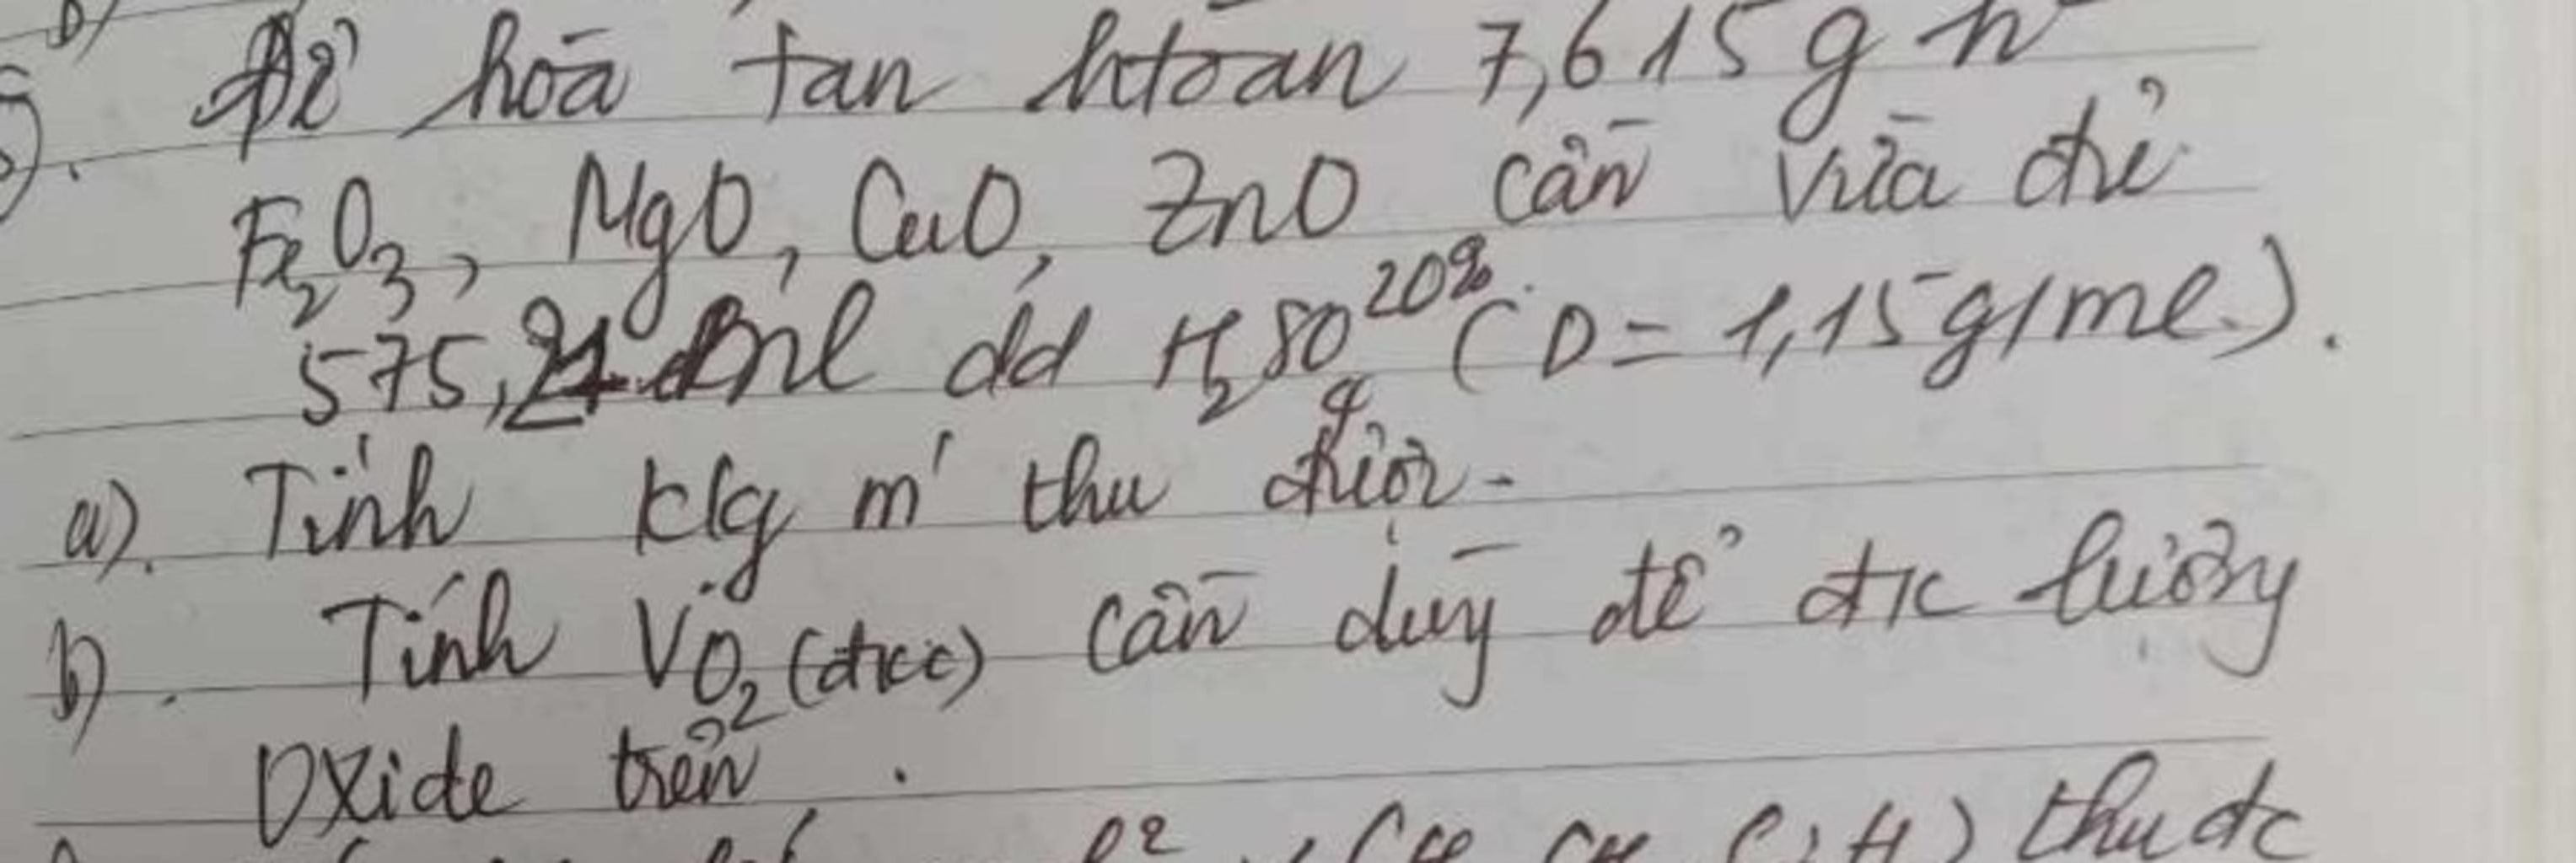 Để hoà tan htoàn 7,615 g h²
Fe₂O₃, MgO, CuO, ZnO cần vừa đủ
575,21 ml dd H₂SO₄ 20% (D = 1,15 g/ml).
a). Tính klg m' thu được.
b). Tính VO₂ (đkc) cần dùng để đc lượng
Oxide trên.
thu đc